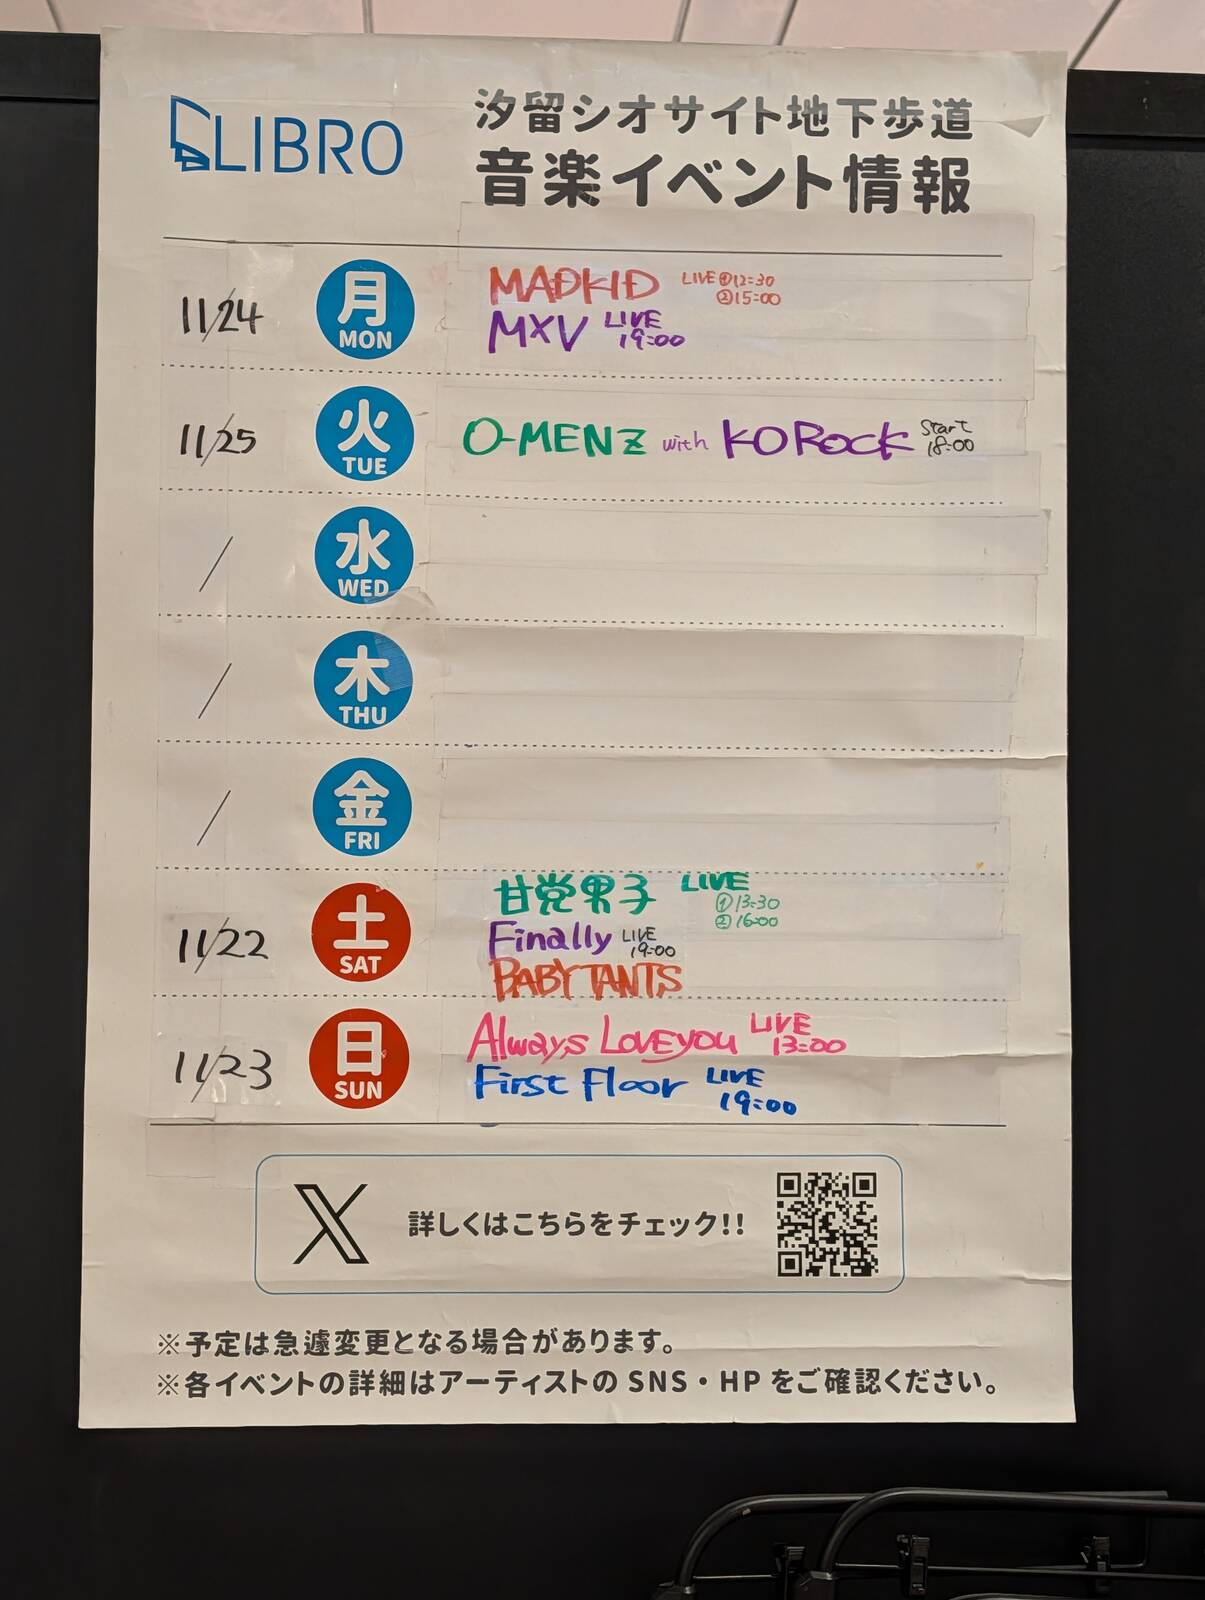 LIBRO
汐留シオサイト地下歩道
音楽イベント情報
11/24 月 MON MADKID LIVE ①12:30
②15:00
MXV LIVE 19:00
11/25 火 TUE O-MENZ with KORock Start 18:00
/ 水 WED
/ 木 THU
/ 金 FRI
11/22 土 SAT 甘党男子 LIVE ①13:30
②16:00
Finally LIVE 19:00
BABYTANTS
11/23 日 SUN Always Loveyou LIVE 13:00
First Floor LIVE 19:00
X 詳しくはこちらをチェック!!
※予定は急遽変更となる場合があります。
※各イベントの詳細はアーティストの SNS・HP をご確認ください。